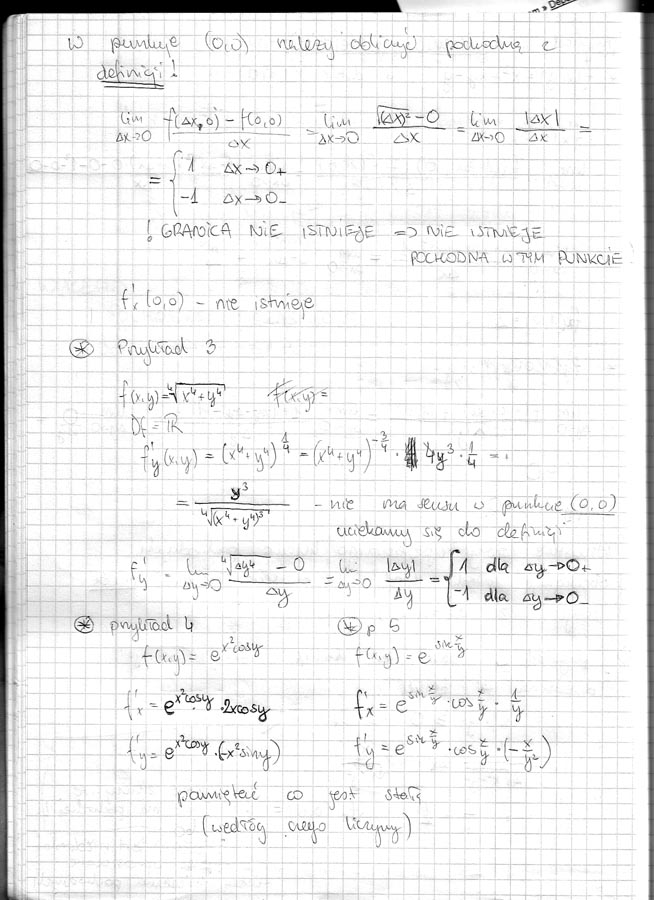 W punkcje (0,0) należy obliczyć pochodną z
definicji!
lim Δx→0 f(Δx,0) - f(0,0) / Δx = lim Δx→0 √(Δx)² - 0 / Δx = lim Δx→0 |Δx| / Δx =
= { 1 Δx→0+
-1 Δx→0-
! GRANICA NIE ISTNIEJE => NIE ISTNIEJE
POCHODNA W TYM PUNKCIE
f'x (0,0) - nie istnieje
* Przykład 3
f(x,y) = ⁴√x⁴+y⁴ f(x,y)=
Df = ℝ
f'y(x,y) = (x⁴+y⁴)^1/4 = (x⁴+y⁴)^-3/4 · 4y³ · 1/4 =
= y³ / ⁴√(x⁴+y⁴)³ - nie ma sensu w punkcie (0,0)
uciekamy się do definicji
f'y = lim Δy→0 ⁴√Δy⁴ - 0 / Δy = lim Δy→0 |Δy| / Δy = { 1 dla Δy→0+
-1 dla Δy→0-
* przykład 4 * p 5
f(x,y) = e^x²cosy f(x,y) = e^sin x/y
f'x = e^x²cosy · 2xcosy f'x = e^sin x/y · cos x/y · 1/y
f'y = e^x²cosy · (-x²siny) f'y = e^sin x/y · cos x/y · (-x/y²)
pamiętać co jest stałą
(według czego liczymy)